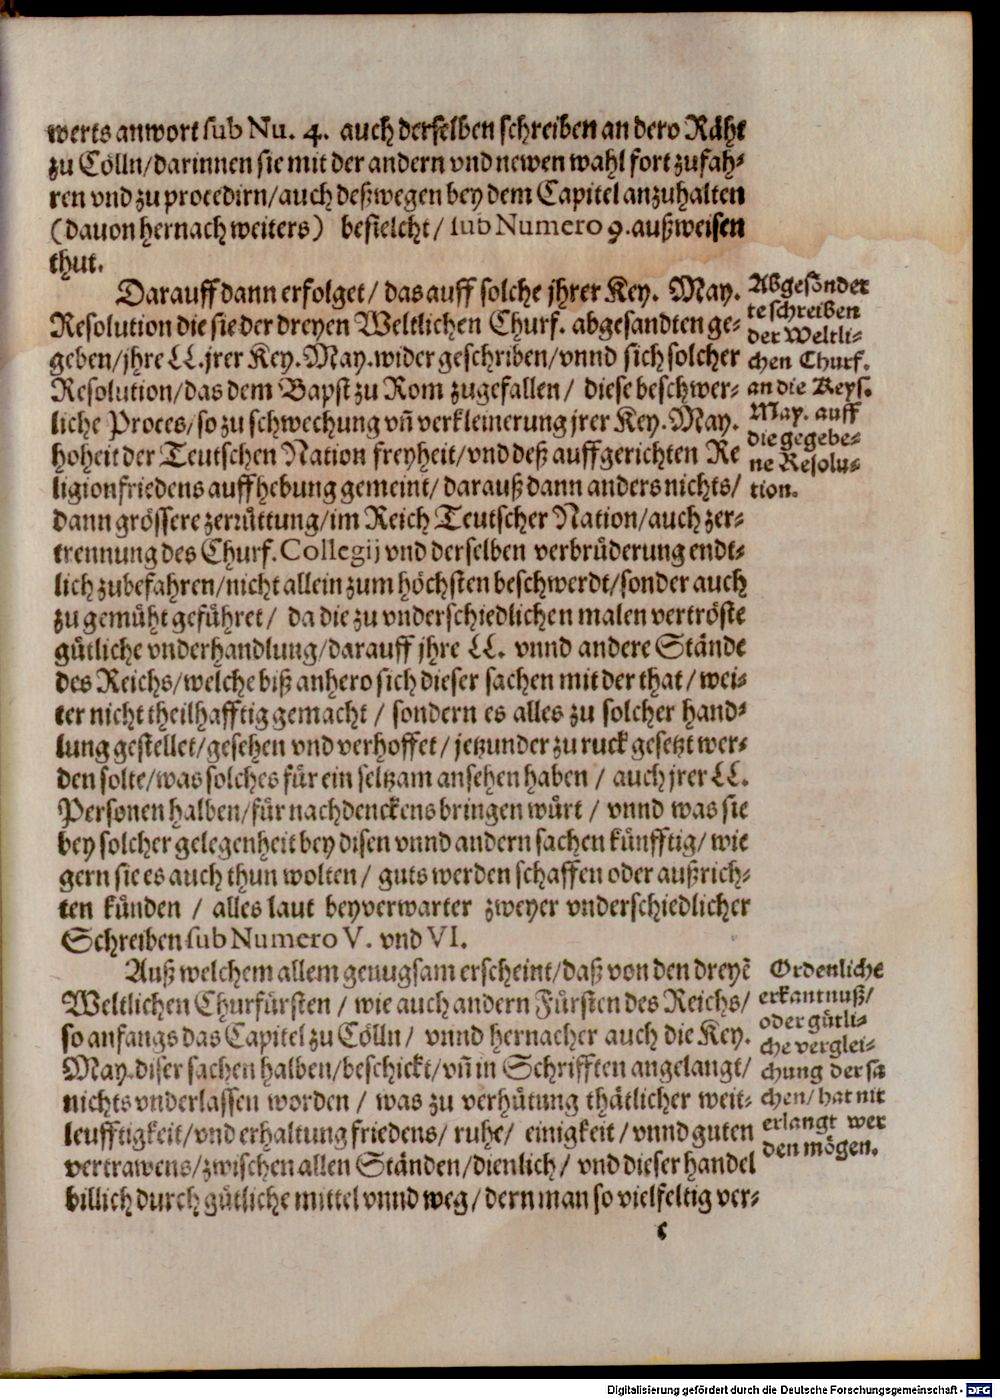 werts anwort sub Nu. 4. auch derselben schreiben an dero Räht
zu Cölln/darinnen sie mit der andern vnd newen wahl fort zufah-
ren vnd zu procedirn/auch deßwegen bey dem Capitel anzuhalten
(dauon hernach weiters) befielcht/ sub Numero 9.außweisen
thut.
Darauff dann erfolget/ das auff solche jhrer Key. May.
Resolution die sie der dreyen Weltlichen Churf. abgesandten ge-
geben/jhre LL.jrer Key.May.wider geschriben/vnnd sich solcher
Resolution/das dem Bapst zu Rom zugefallen/ diese beschwer-
liche Proces/so zu schwechung vñ verkleinerung jrer Key.May.
hoheit der Teutschen Nation freyheit/vnd deß auffgerichten Re
ligionfriedens auffhebung gemeint/ darauß dann anders nichts/
dann grössere zerrüttung/im Reich Teutscher Nation/auch zer-
trennung des Churf.Collegij vnd derselben verbrüderung endt-
lich zubefahren/nicht allein zum höchsten beschwerdt/sonder auch
zu gemüht geführet/ da die zu vnderschiedlichen malen vertröste
gütliche vnderhandlung/darauff jhre LL. vnnd andere Stände
des Reichs/welche biß anhero sich dieser sachen mit der that/wei-
ter nicht theilhafftig gemacht / sondern es alles zu solcher hand-
lung gestellet/gesehen vnd verhoffet/jetzunder zu ruck gesetzt wer-
den solte/was solches für ein seltzam ansehen haben / auch jrer LL.
Personen halben/für nachdenckens bringen würt / vnnd was sie
bey solcher gelegenheit bey disen vnnd andern sachen künfftig/ wie
gern sie es auch thun wolten/ guts werden schaffen oder außrich-
ten künden / alles laut beyverwarter zweyer vnderschiedlicher
Schreiben sub Numero V. vnd VI.
Abgesönder
te schreiben
der Weltli-
chen Churf.
an die Keys.
May. auff
die gegebe-
ne Resolu-
tion.
Auß welchem allem genugsam erscheint/daß von den dreyẽ
Weltlichen Churfürsten / wie auch andern Fürsten des Reichs/
so anfangs das Capitel zu Cölln/ vnnd hernacher auch die Key.
May.diser sachen halben/beschickt/vñ in Schrifften angelangt/
nichts vnderlassen worden / was zu verhütung thätlicher weit-
leufftigkeit/vnd erhaltung friedens/ ruhe/ einigkeit/vnnd guten
vertrawens/zwischen allen Ständen/dienlich/ vnd dieser handel
billich durch gütliche mittel vnnd weg/dern man so vielfeltig ver-
Ordenliche
erkantnuß/
oder gütli-
che verglei-
chung der sa
chen/hat nit
erlangt wer
den mögen.
c
Digitalisierung gefördert durch die Deutsche Forschungsgemeinschaft - DFG